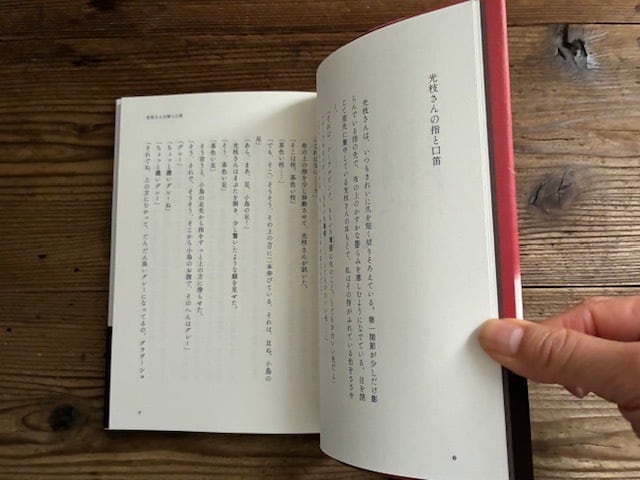 光枝さんの指と口笛
光枝さんは、いつもきれいに爪を短く切りそろえている。第一関節が少しだけ膨
らんでいる指の先で、布の上のかすかな膨らみを慈しむようになでている。目を閉
じて指先に集中している光枝さんの話もとで、私はその指がふれている色をささや
6
光枝さんの指と口笛
布の上の指を少し移動させて、光枝さんが訊いた。
「そこは枝。茶色い枝」
「茶色い枝……」
「でも、そこ、そうそう、その上の方に二本伸びている、それは、足ね。小鳥の
足」
「あら、まあ、足。小鳥の足!」
光枝さんはまぶたを開き、少し驚いたような顔を見せた。
「そう、茶色い足」
「茶色い足」
そう言うと、小鳥の足先から指をすーっと上の方に滑らせた。
「そう、それで、そうそう、そこから小鳥のお腹で、そのへんはグレー」
「グレー」
「ちょっと濃いグレーね」
「ちょっと濃いグレー」
「それでね、上の方にむかって、だんだん淡いグレーになってるの。グラデーショ
7